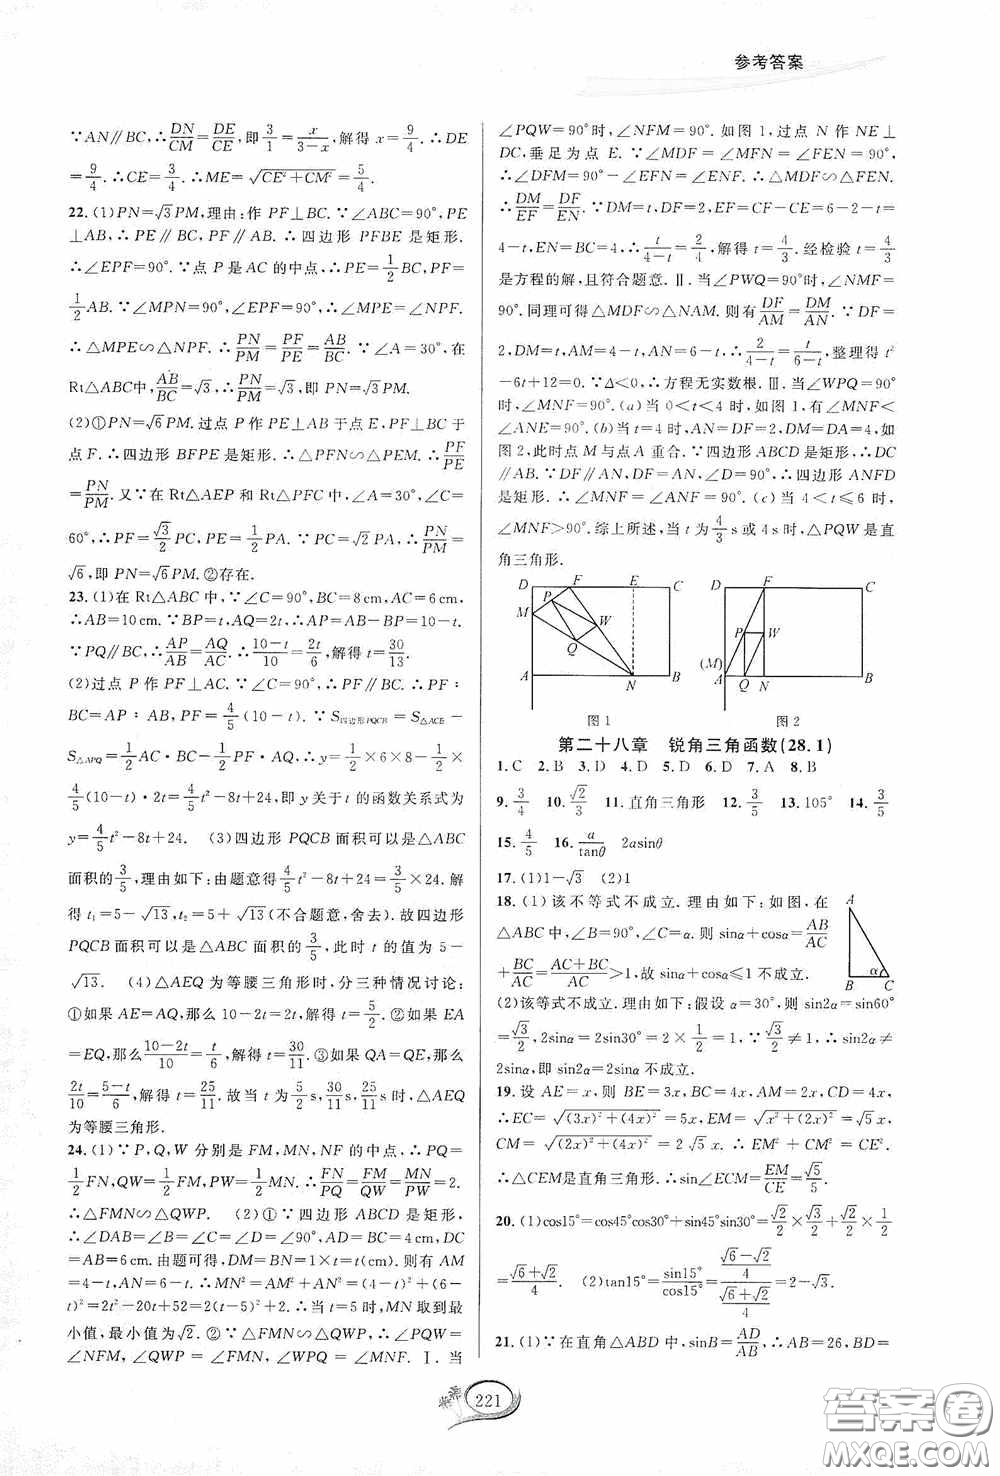 参考答案
∵AN∥BC,∴DN/CM=DE/CE,即3/1=x/(3-x),解得 x=9/4.∴DE
=9/4.∴CE=3/4.∴ME=√(CE²+CM²)=5/4.
22.(1)PN=√3PM,理由:作 PF⊥BC.∵∠ABC=90°,PE
⊥AB,∴PE∥BC,PF∥AB.∴四边形 PFBE 是矩形.
∴∠EPF=90°.∵点 P 是 AC 的中点,∴PE=1/2BC,PF=
1/2AB.∵∠MPN=90°,∠EPF=90°,∴∠MPE=∠NPF.
∴△MPE∽△NPF.∴PN/PM=PF/PE=AB/BC.∵∠A=30°,在
Rt△ABC中,AB/BC=√3,∴PN/PM=√3,即 PN=√3PM.
(2)①PN=√6PM.过点 P 作 PE⊥AB 于点 E,PF⊥BC 于
点 F.∴四边形 BFPE 是矩形.∴△PFN∽△PEM.∴PF/PE
=PN/PM.又∵在 Rt△AEP 和 Rt△PFC 中,∠A=30°,∠C=
60°,∴PF=√3/2PC,PE=1/2PA.∵PC=√2PA,∴PN/PM=PF/PE=
√6,即 PN=√6PM.②存在.
23.(1)在 Rt△ABC 中,∵∠C=90°,BC=8cm,AC=6cm,
∴AB=10cm.∵BP=t,AQ=2t,∴AP=AB-BP=10-t.
∵PQ∥BC,∴AP/AB=AQ/AC.∴(10-t)/10=2t/6,解得 t=30/13.
(2)过点 P 作 PF⊥AC.∵∠C=90°,∴PF∥BC.∴PF:
BC=AP:AB,PF=4/5(10-t).∵S四边形PQCB=S△ACE-
S△APQ=1/2AC·BC-1/2AQ·PF,∴y=1/2×6×8-1/2×2t×
4/5(10-t)=4/5t²-8t+24,即 y 关于 t 的函数关系式为
y=4/5t²-8t+24. (3)四边形 PQCB 面积可以是△ABC
面积的3/5,理由如下:由题意得4/5t²-8t+24=3/5×24.解
得 t₁=5-√13,t₂=5+√13(不合题意,舍去).故四边形
PQCB 面积可以是△ABC 面积的3/5,此时 t 的值为 5-
√13. (4)△AEQ 为等腰三角形时,分三种情况讨论:
①如果 AE=AQ,那么 10-2t=2t,解得 t=5/2.②如果 EA
=EQ,那么(10-2t)/10=t/6,解得 t=30/11.③如果 QA=QE,那么
2t/10=(5-t)/6,解得 t=25/11.故当 t 为5/2s,30/11s,25/11s 时,△AEQ
为等腰三角形.
24.(1)∵P,Q,W 分别是 FM,MN,NF 的中点,∴PQ=
1/2FN,QW=1/2FM,PW=1/2MN.∴FN/PQ=FM/QW=MN/PW=2.
∴△FMN∽△QWP. (2)①∵四边形 ABCD 是矩形,
∴∠DAB=∠B=∠C=∠D=90°,AD=BC=4cm,DC
=AB=6cm.由题可得,DM=BN=1×t=t(cm).则有 AM
=4-t,AN=6-t.∴MN²=AM²+AN²=(4-t)²+(6-
t)²=2t²-20t+52=2(t-5)²+2.∴当 t=5 时,MN 取到最
小值,最小值为√2.②∵△FMN∽△QWP,∴∠PQW
=∠NFM,∠QWP=∠FMN,∠WPQ=∠MNF.Ⅰ.当
∠PQW=90°时,∠NFM=90°.如图 1,过点 N 作 NE⊥
DC,垂足为点 E.∵∠MDF=∠MFN=∠FEN=90°,
∴∠DFM=90°-∠EFN=∠ENF.∴△MDF∽△FEN.
∴DM/EF=DF/EN.∵DM=t,DF=2,EF=CF-CE=6-2-t=
4-t,EN=BC=4,∴t/(4-t)=2/4,解得 t=4/3.经检验 t=4/3
是方程的解,且符合题意.Ⅱ.当∠PWQ=90°时,∠NMF=
90°.同理可得△MDF∽△NAM.则有DF/AM=DM/AN.∵DF=
2,DM=t,AM=4-t,AN=6-t,∴2/(4-t)=t/(6-t),整理得 t²
-6t+12=0.∵Δ<0,∴方程无实数根.Ⅲ.当∠WPQ=90°
时,∠MNF=90°.(a)当 0<t<4 时,如图 1,有∠MNF<
∠ANE=90°.(b)当 t=4 时,AN=DF=2,DM=DA=4,如
图 2,此时点 M 与点 A 重合.∵四边形 ABCD 是矩形,∴DC
∥AB.∵DF∥AN,DF=AN,∠D=90°,∴四边形 ANFD
是矩形.∴∠MNF=∠ANF=90°.(c)当 4<t≤6 时,
∠MNF>90°.综上所述,当 t 为4/3s或 4s时,△PQW 是直
角三角形.
D F E C
P
M
W
Q
A N B
图 1
D F C
P W
(M)
A Q N B
图 2
第二十八章 锐角三角函数(28.1)
1.C 2.B 3.D 4.D 5.D 6.D 7.A 8.B
9.3/4 10.√2/3 11.直角三角形 12.3/5 13.105° 14.3/5
15.4/5 16.a/tanθ 2asinθ
17.(1)1-√3 (2)1
18.(1)该不等式不成立.理由如下:如图,在
△ABC 中,∠B=90°,∠C=α.则 sinα+cosα=AB/AC
+BC/AC=(AB+BC)/AC>1,故 sinα+cosα≤1 不成立.
A
α
B C
(2)该等式不成立.理由如下:假设 α=30°,则 sin2α=sin60°
=√3/2,2sinα=2sin30°=2×1/2=1.∵√3/2≠1,∴sin2α≠
2sinα,即 sin2α=2sinα 不成立.
19.设 AE=x,则 BE=3x,BC=4x,AM=2x,CD=4x,
∴EC=√((3x)²+(4x)²)=5x,EM=√(x²+(2x)²)=√5x,
CM=√((2x)²+(4x)²)=2√5x.∴EM²+CM²=CE².
∴△CEM是直角三角形.∴sin∠ECM=EM/CE=√5/5.
20.(1)cos15°=cos45°cos30°+sin45°sin30°=√2/2×√3/2+√2/2×1/2
=(√6+√2)/4. (2)tan15°=sin15°/cos15°=((√6-√2)/4)/((√6+√2)/4)=2-√3.
21.(1)∵在直角△ABD 中,sinB=AD/AB,∴AB=26,BD=
221
答案圈
MXQE.COM